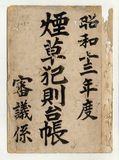 昭和十三年度
煙草犯則台帳
審議係